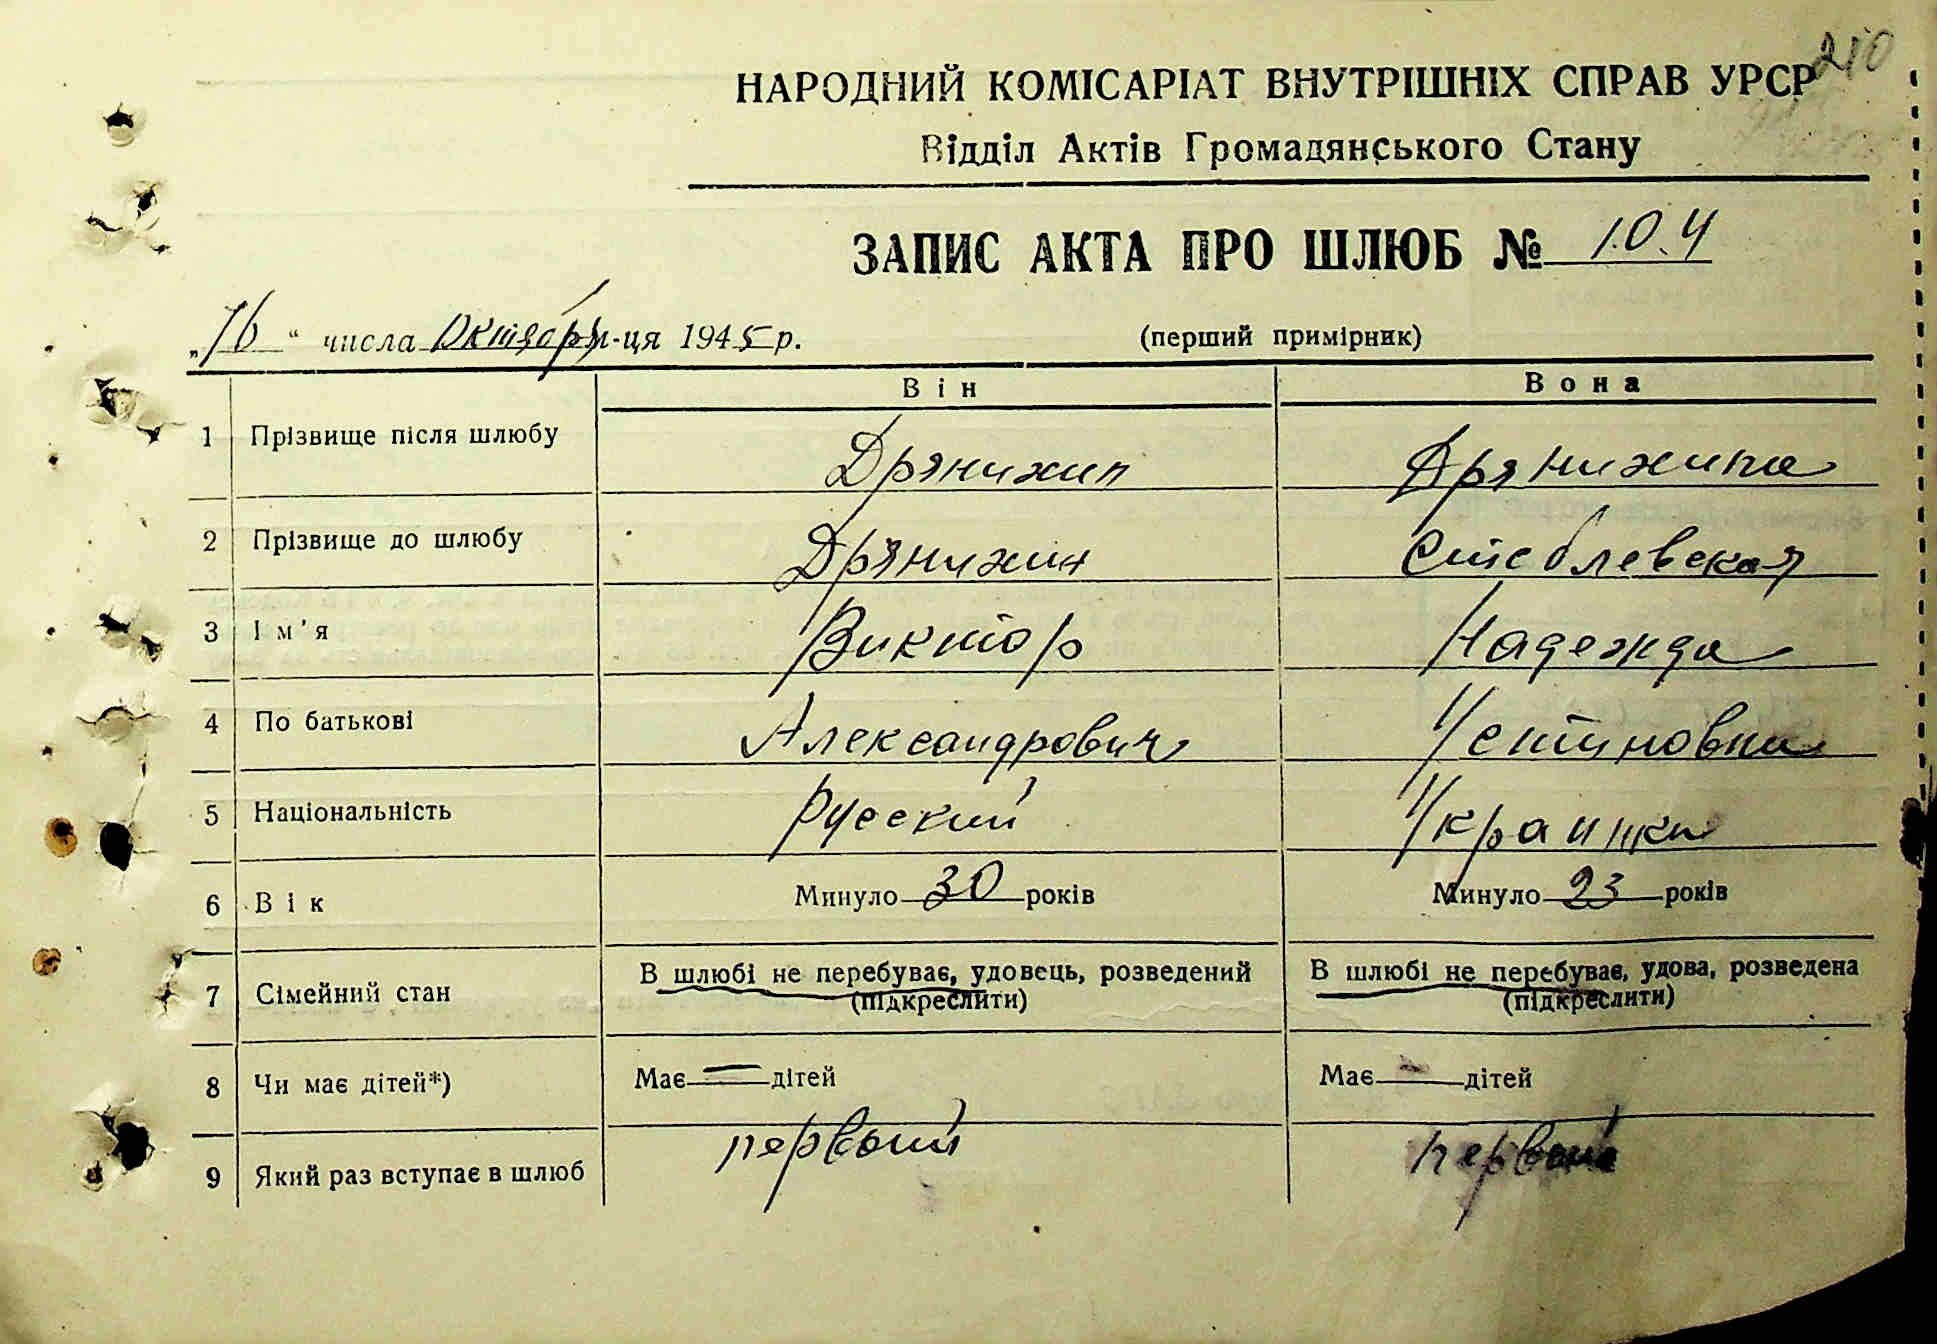 210
НАРОДНИЙ КОМІСАРІАТ ВНУТРІШНІХ СПРАВ УРСР
Відділ Актів Громадянського Стану
ЗАПИС АКТА ПРО ШЛЮБ № 104
„16“ числа Октября-ця 1945 р.
(перший примірник)
Він Вона
1 Прізвище після шлюбу Дрянихин Дрянихина
2 Прізвище до шлюбу Дрянихин Стеблевская
3 Ім'я Виктор Надежда
4 По батькові Александрович Устиновна
5 Національність Русский Украинка
6 Вік Минуло 30 років Минуло 23 років
7 Сімейний стан В шлюбі не перебуває, удовець, розведений В шлюбі не перебуває, удова, розведена
(підкреслити) (підкреслити)
8 Чи має дітей*) Має — дітей Має — дітей
9 Який раз вступає в шлюб первый первый